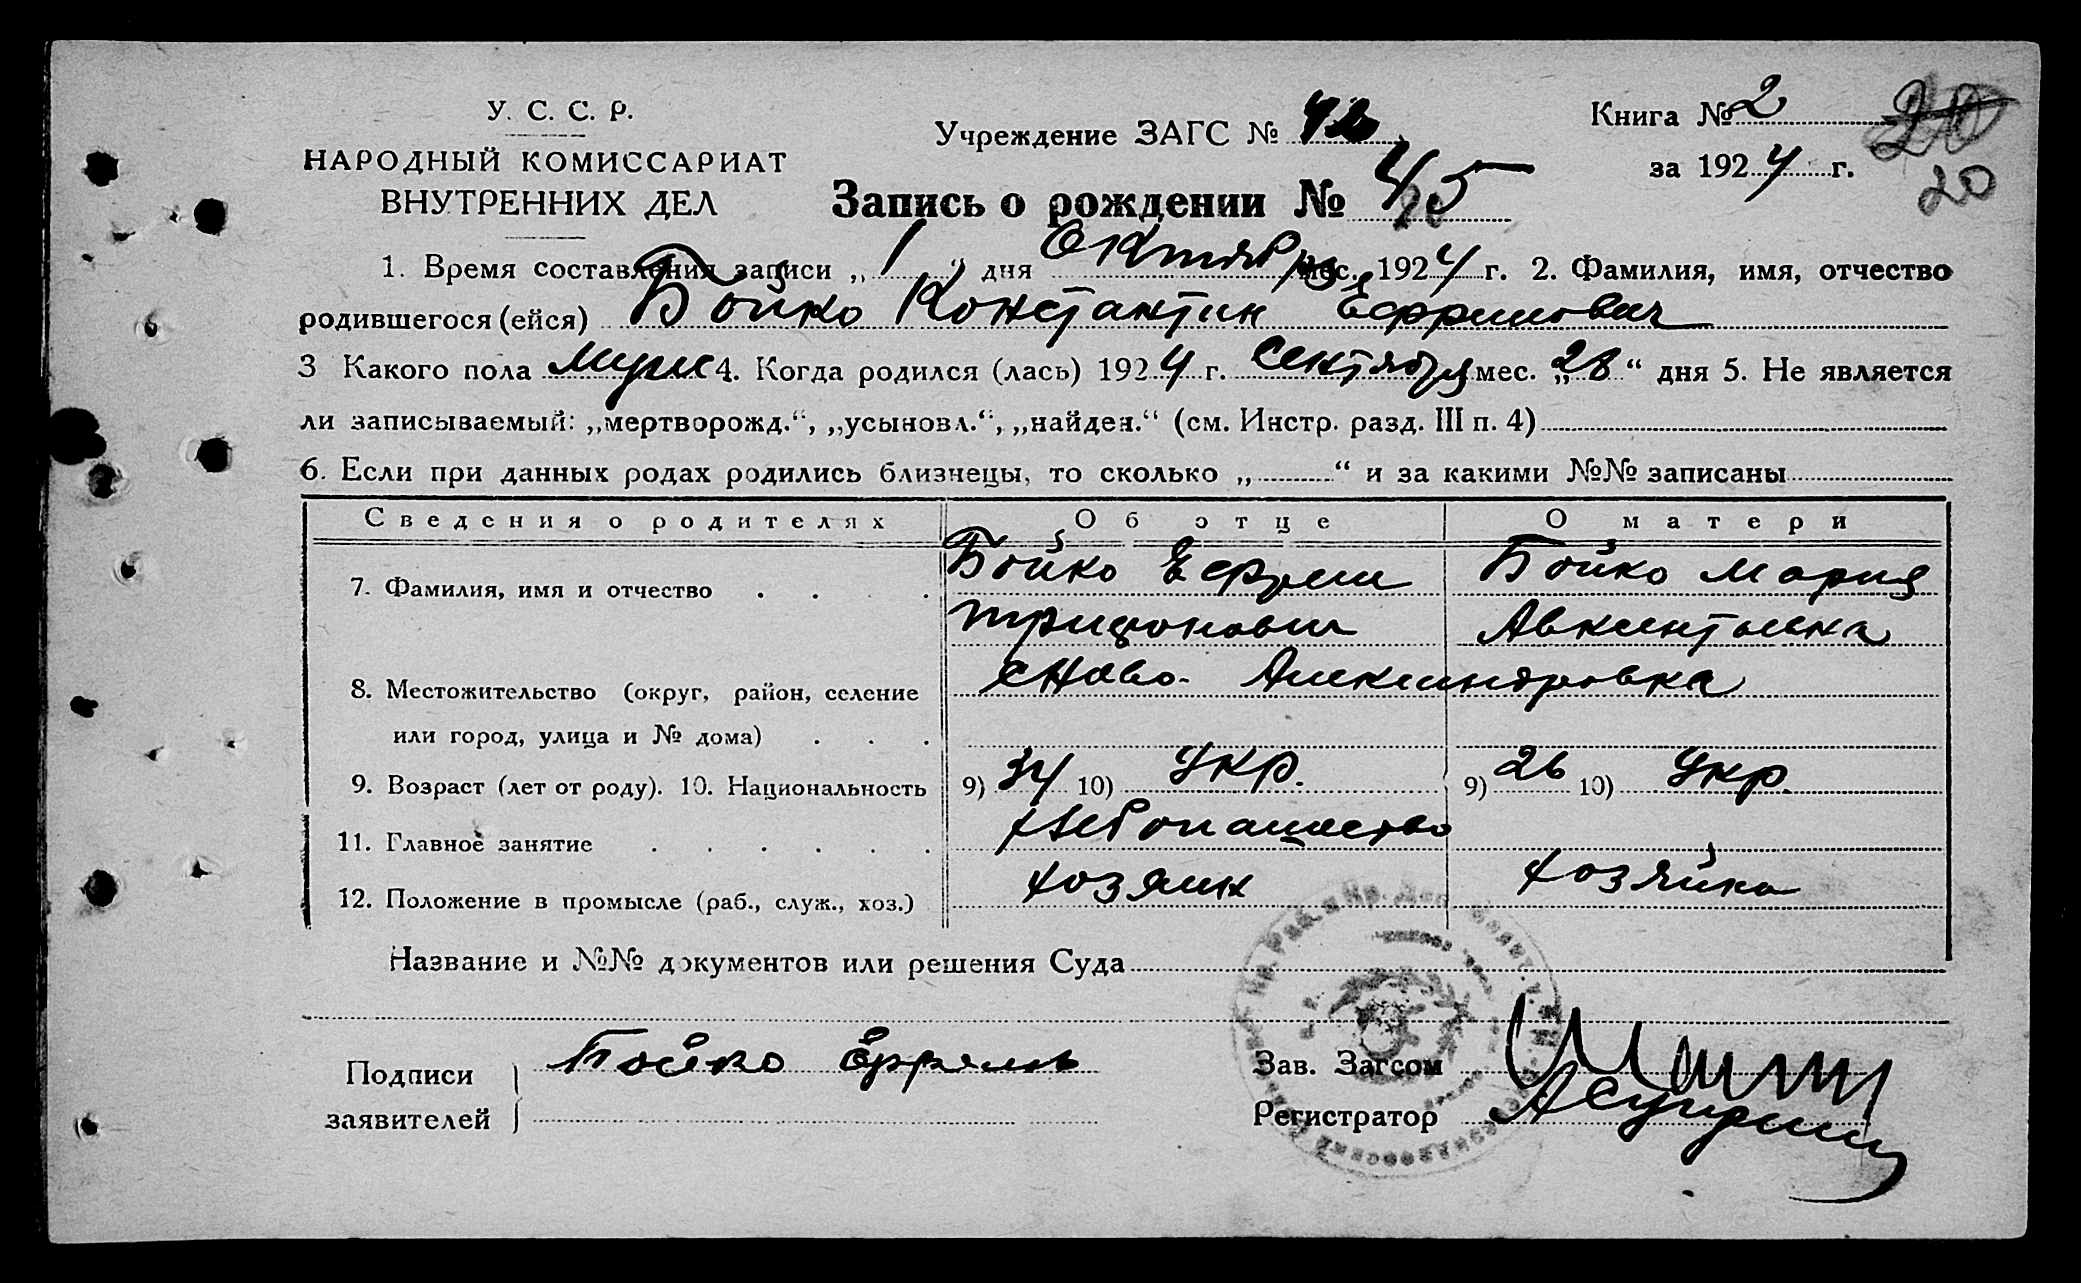 У. С. С. Р.
НАРОДНЫЙ КОМИССАРИАТ
ВНУТРЕННИХ ДЕЛ
Учреждение ЗАГС №
Запись о рождении № 45
Книга № 2
за 1924 г.
20
20
1. Время составления записи „ 1 “ дня Октября мес. 1924 г. 2. Фамилия, имя, отчество
родившегося (ейся) Бойко Константин Ефримович
3 Какого пола муж 4. Когда родился (лась) 1924 г. Сентября мес. „ “ дня 5. Не является
ли записываемый: „мертворожд.“, „усыновл.“, „найден.“ (см. Инстр. разд. III п. 4)
6. Если при данных родах родились близнецы, то сколько „ “ и за какими №№ записаны
Сведения о родителях Об отце О матери
7. Фамилия, имя и отчество Бойко Ефрем Бойко Мария
8. Местожительство (округ, район, селение Ново-Александровка
или город, улица и № дома)
9. Возраст (лет от роду). 10. Национальность 9) 34 10) Укр. 9) 26 10) Укр.
11. Главное занятие хлебопашество
12. Положение в промысле (раб., служ., хоз.) хозяин хозяйка
Название и №№ документов или решения Суда
Подписи Бойко
заявителей
Зав. Загсом
Регистратор